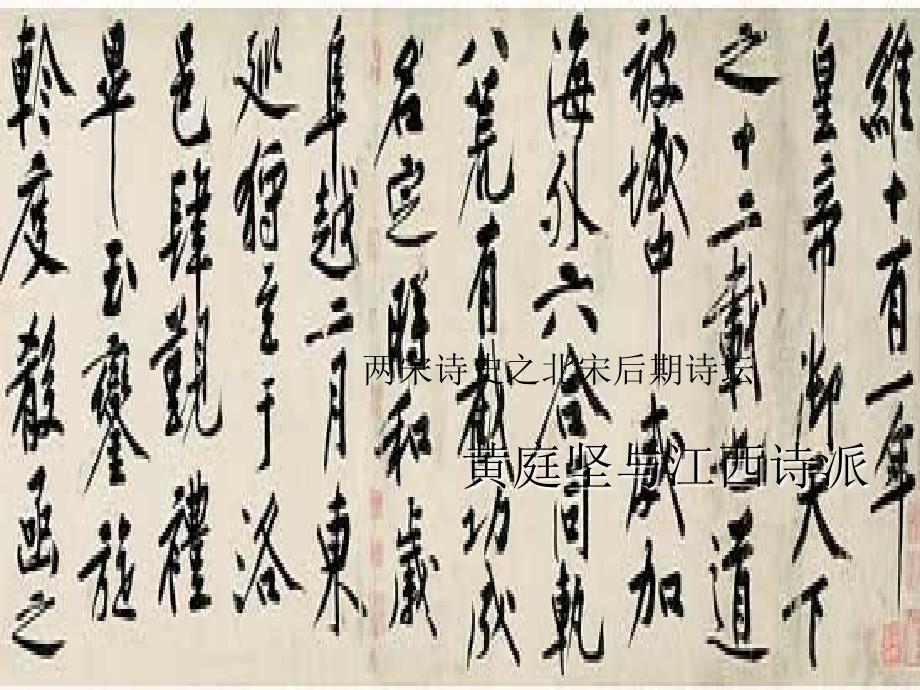 維十有一年
皇帝御天下
之十二載也道
被域中威加
海外六合同軌
八荒有截功成
名定時和歲
阜越二月東
巡狩至于洛
邑肆覲禮
畢玉鑾旋
軫度殽函之
两宋诗史之北宋后期诗坛
黄庭坚与江西诗派